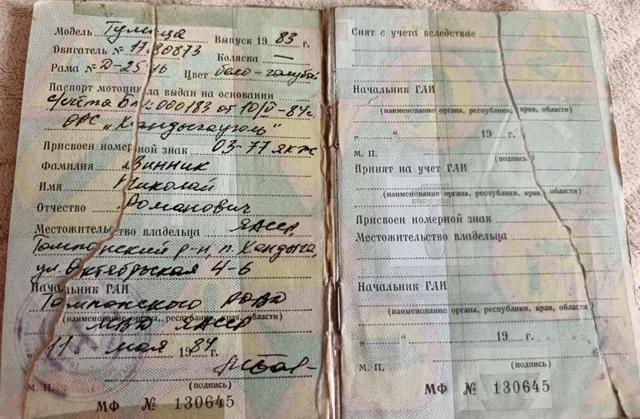 Модель Тулица Выпуск 19 83 г.
Двигатель № 11.80873 Коляска —
Рама № Д-25 16 Цвет бело-голубой
Паспорт мотоцикла выдан на основании
с/счёта 000183 от 10/V-84г.
ОРС „Хандыгауголь"
Присвоен номерной знак 03-77 якж
Фамилия Винник
Имя Николай
Отчество Романович
Местожительство владельца ЯАССР
Томпонский р-н, п. Хандыга,
ул. Октябрьская 4-6
Начальник ГАИ
Томпонского РОВД
(наименование органа, республики, края, области)
МВД ЯАССР
„ 11 " мая 19 84 г.
М. П. (подпись)
МФ № 130645
Снят с учета вследствие
Начальник ГАИ
(наименование органа, республики, края, области)
„ " 19 г.
М. П. (подпись)
Принят на учет ГАИ
(наименование органа, республики, края, области)
Присвоен номерной знак
Местожительство владельца
Начальник ГАИ
(наименование органа, республики, края, области)
„ " 19 г.
М. П. (подпись)
МФ № 130645